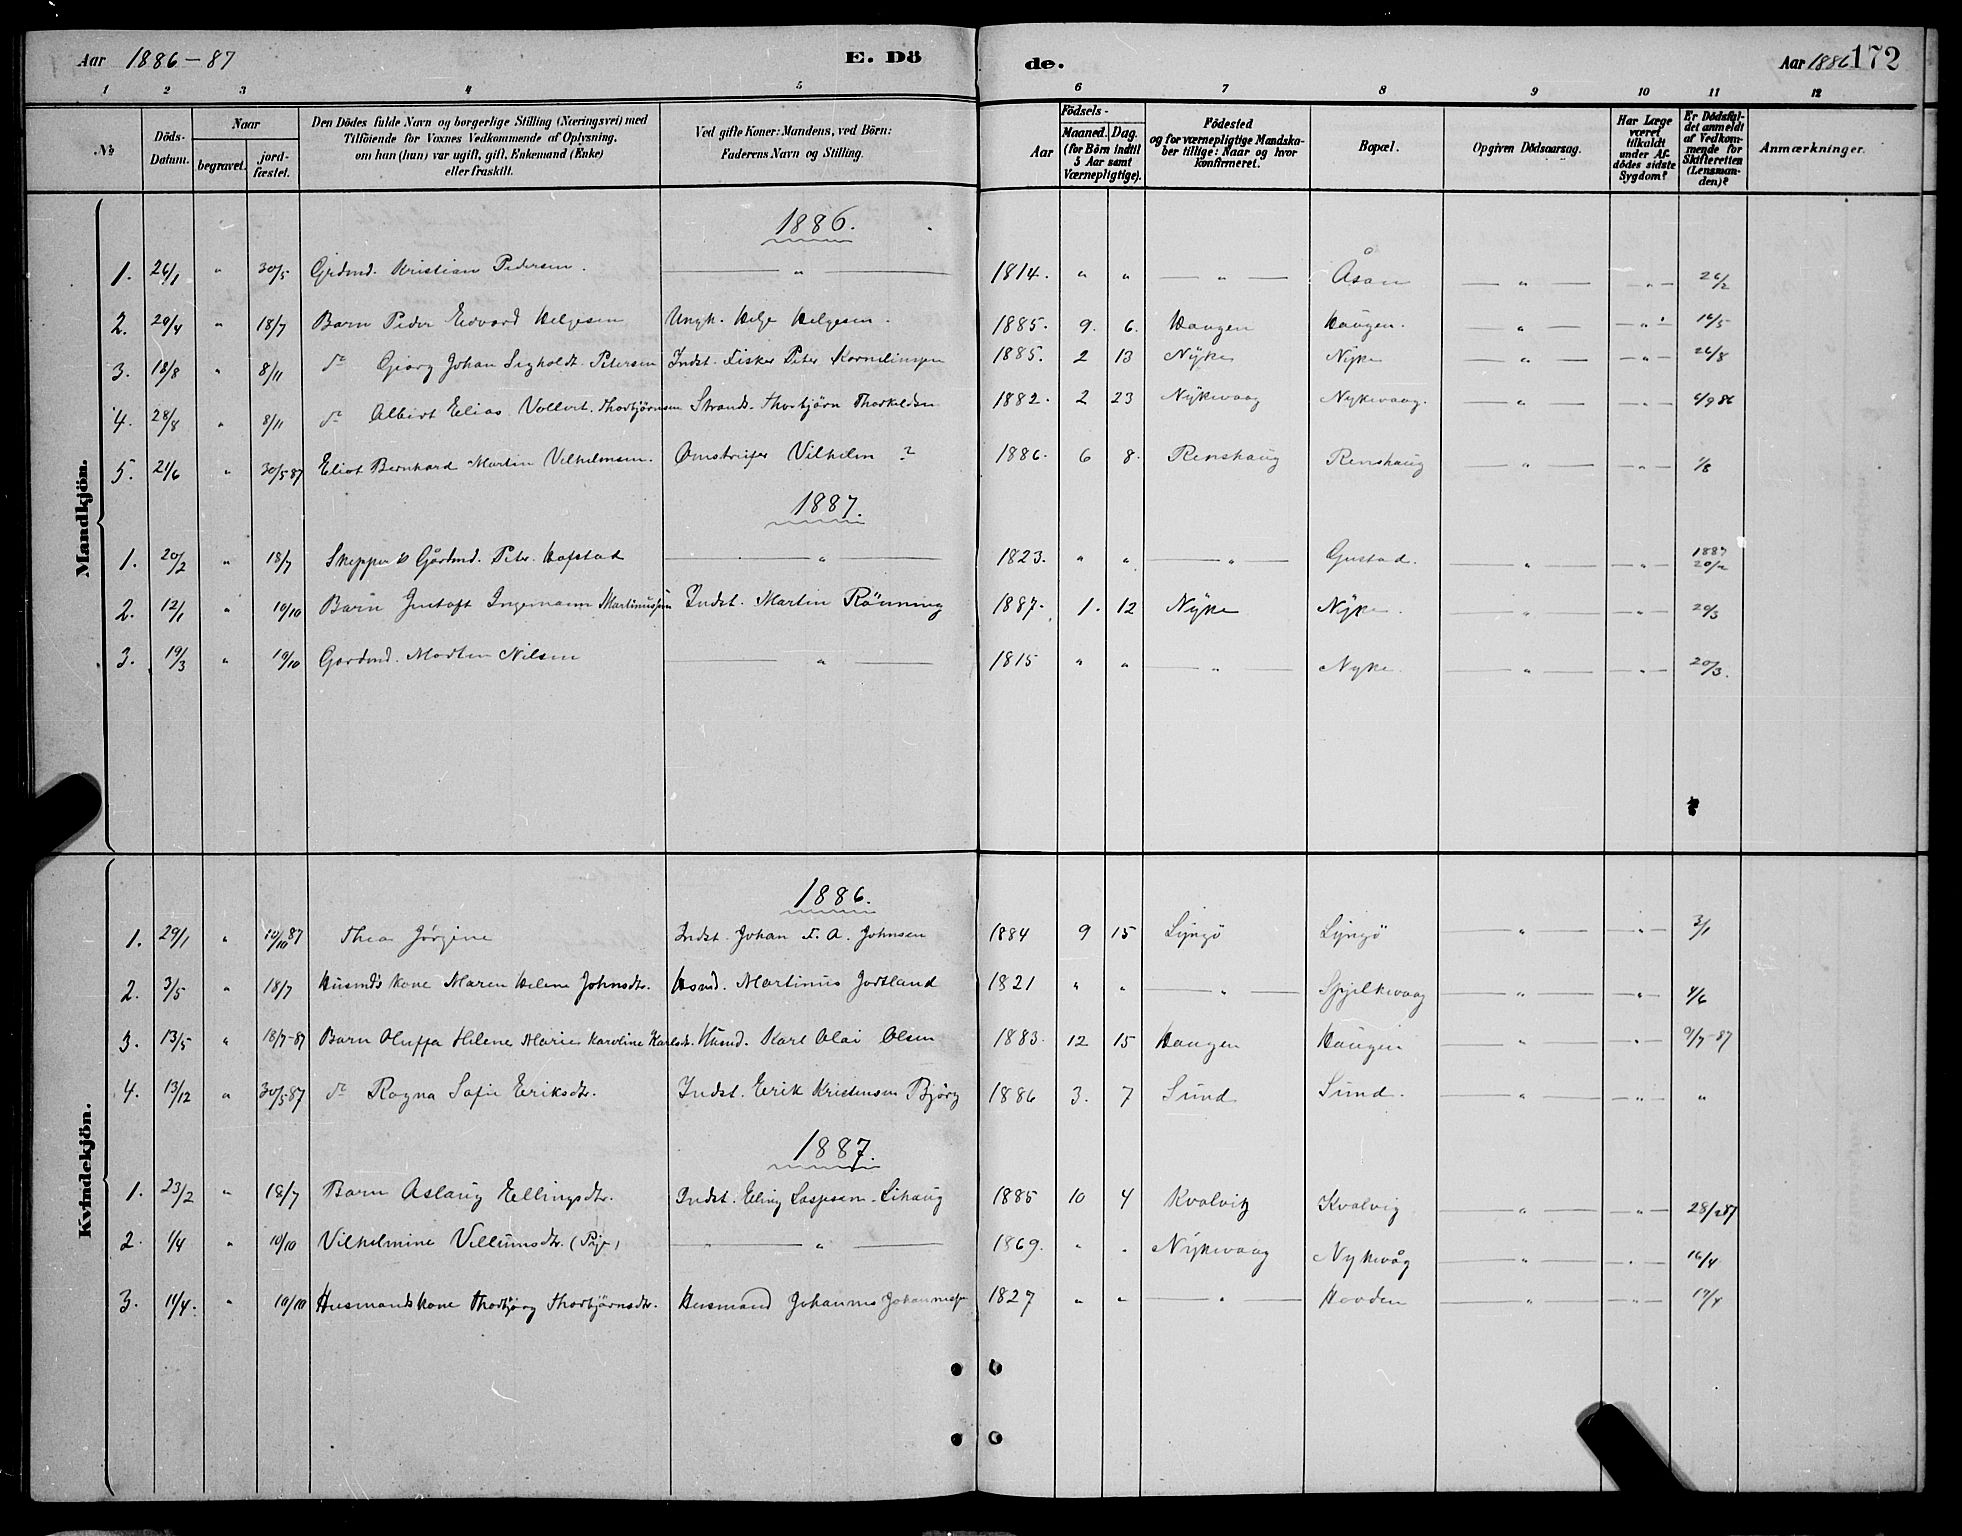 Aar 1886-87 E. Dö de. Aar 1886 172
1 2 3 4 5 6 7 8 9 10 11 12
№
Döds-Datum.
Naar
begravet.
jord-fæstet.
Den Dödes fulde Navn og borgerlige Stilling (Næringsvei) med
Tilföiende for Voxnes Vedkommende af Oplysning,
om han (hun) var ugift, gift, Enkemand (Enke)
eller fraskilt.
Ved gifte Koner: Mandens, ved Börn:
Faderens Navn og Stilling.
Födsels-
Aar
Maaned. Dag.
(for Börn indtil
5 Aar samt
Værnepligtige).
Födested
og for værnepligtige Mandska-
ber tillige: Naar og hvor
konfirmeret.
Bopæl.
Opgiven Dödsaarsag.
Har Læge
været
tilkaldt
under Af-
dödes sidste
Sygdom?
Er Dödsfal-
det anmeldt
af Vedkom-
mende for
Skifteretten
(Lensman-
den)?
Anmærkninger.
Mandkjön.
1886.
1. 26/1 " 30/5 Grdmd. Kristian Pedersen. — " — 1814. " " — " — Åsan — " — — " — 26/2
2. 29/4 " 18/7 Barn Peder Edvard Helgesen Ungk. Helge Helgesen. 1885. 9. 6. Haugen Haugen. — " — — " — 16/5
3. 18/8 " 8/11 do Georg Johan Sigholdt Petersen Indst. Fisker Peter Korneliusen 1885. 2 13 Nyke Nyke — " — — " — 26/8
4. 28/8 " 8/11 do Albert Elias Vollert Thorbjørnsen Strands. Thorbjörn Thorkildsen 1882. 2 23 Nykevaag Nykevaag. — " — — " — 6/9 86
5. 21/6 " 30/5 87 Eliot Bernhard Martin Vilhelmsen. Omstreifer Vilhelm ? 1886. 6 8. Renshaug Renshaug — " — — " — 1/8
1887.
1. 20/2 " 18/7 Skipper & Gårdmd. Peter Hofstad — " — 1823. " " — " — Gustad. — " — — " — 1887
2. 12/1 " 10/10 Barn Gustaft Ingemann Martinussen Indst. Martin Rönning 1887. 1. 12 Nyke Nyke. — " — — " — 20/3
3. 19/3 " 10/10 Gardmd. Morten Nilsen — " — 1815 " " — " — Nyke. — " — — " — 20/3.
Kvindekjön.
1886.
1. 29/1 " 10/10 87 Thea Jørgine Indst. Johan F. A. Johnsen 1884 9 15 Lyngö Lyngö — " — — " — 3/1
2. 3/5 " 18/7 Husmds kone Maren Helene Johnsdtr. Hsmd. Martinus Jortland 1821 " " — " — Spjelkevaag — " — — " — 4/6
3. 13/5 " 18/7-87 Barn Oluffa Helene Marie Karoline Karlsdtr. Husmd. Karl Olai Olsen 1883. 12 15 Haugen Haugen — " — — " — 9/7-87
4. 13/12 " 30/5 87 do Ragna Sofie Eriksdtr. Indst. Erik Kristensen Bjørg 1886 3. 7 Sund Sund. — " — — " — "
1887.
1. 23/2 " 18/7 Barn Aslaug Ellingsdtr. Indst. Eling Caspersen Lihaug 1885 10 4 Kvalvik Kvalvig — " — — " — 28/2 87
2. 1/4 " 10/10 Vilhelmine Villumsdtr. (Pige) — " — 1869. " " Nykevaag Nykevåg — " — — " — 16/4
3. 11/4. " 10/10 Husmands kone Thorbjørg Thorbjørnsdtr. Husmand Johannes Johannessen 1827 " " — " — Hovden — " — — " — 17/4